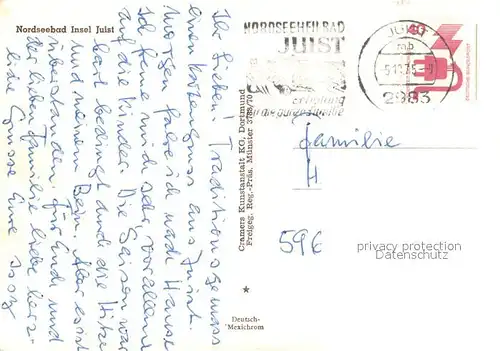 Nordseebad Insel Juist
Ihr Lieben! Traditionsgemäss
einen Kartengruss aus Juist.
Morgen fahre ich nach Hause
Ich freue mich sehr vor allem
auf die Kinder. Die Saison war
hart bedingt durch die Hitze
und meinem Bein. Aber es ist
überstanden. Für Euch und
der lieben Familie liebe herz-
liche Grüsse Eure
Cramers Kunstanstalt KG, Dortmund
Freigeg. Reg.-Präs. Münster 3788/70
★
Deutsch-
'Mexichrom
NORDSEEHEILBAD
JUIST
Erholung
für die ganze Familie
JUIST
mb
2983
40
DEUTSCHE BUNDESPOST
Familie
H
596
privacy protection
Datenschutz